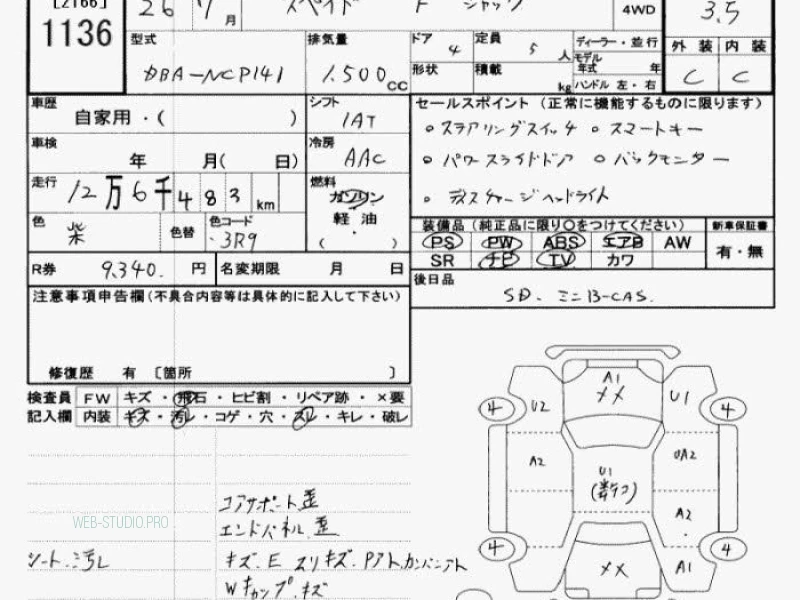 [2166]
1136
26 7 月 スペイド F ジャック 4WD 3.5
型式 DBA-NCP141
排気量 1.500 CC
ドア 4
定員 5 人
ディーラー・並行
モデル年式 年
形状
積載 kg
ハンドル 左・右
外装 内装
C C
車歴 自家用・( )
シフト IAT
車検 年 月( 日)
冷房 AAC
走行 12万6千483 km
燃料 ガソリン
軽油
( )
色 紫
色替
色コード 3R9
R券 9,340. 円
名変期限 月 日
セールスポイント (正常に機能するものに限ります)
○ステアリングスイッチ ○スマートキー
○パワースライドドア ○バックモニター
・ディスチャージヘッドライト
装備品(純正品に限り○をつけてください)
PS PW ABS エアB AW
SR ナビ TV カワ
新車保証書
有・無
後日品
SD. ミニB-CAS.
注意事項申告欄(不具合内容等は具体的に記入して下さい)
修復歴 有 〔箇所 〕
検査員 FW キズ・飛石・ヒビ割・リペア跡・×要
記入欄 内装 キズ・汚レ・コゲ・穴・スレ・キレ・破レ
コアサポート歪
エンドパネル歪
シート汚レ
キズ.E スリキズ.
Wキャップ.キズ
WEB-STUDIO.PRO
A1
××
4 U2 U1 4
A2 U1 UA2
A2
4 4
×× A1